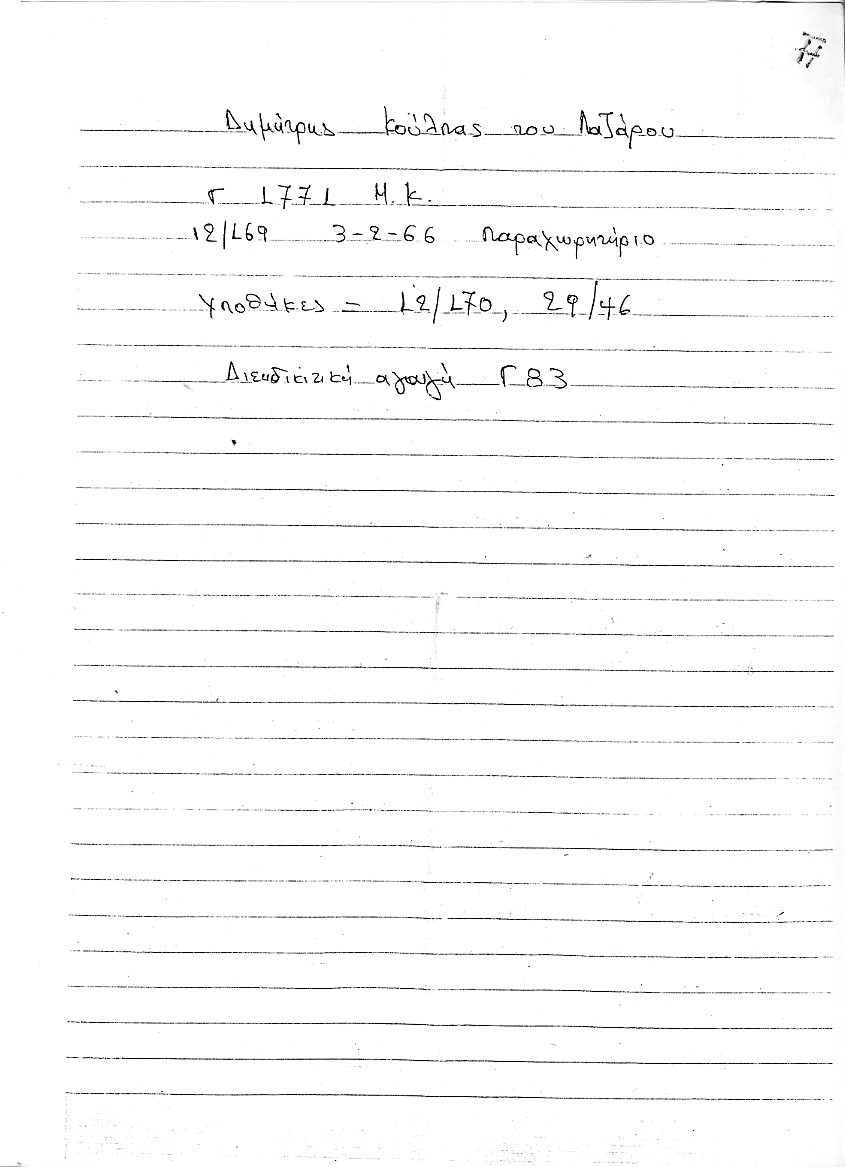 77
Δημήτρης Κούλπας του Λαζάρου
Γ 1771 Μ.Κ.
12/169 3-2-66 Παραχωρητήριο
Υποθήκες = 12/170, 29/46
Διεκδικιτική αγωγή Γ83